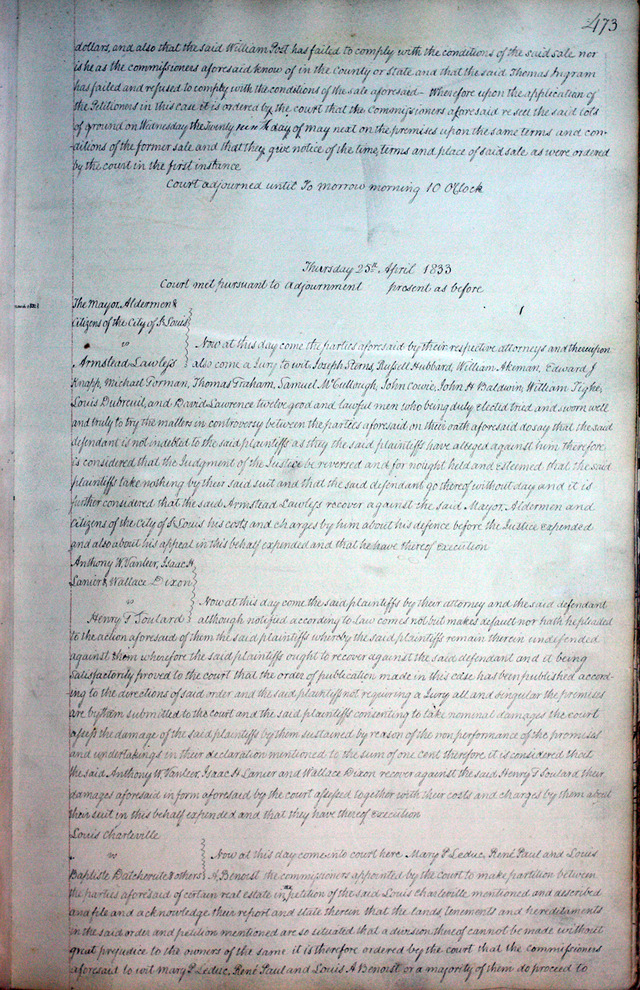 473
dollars, and also that the said William Post has failed to comply with the conditions of the said sale nor
is he as the commissioners aforesaid know of in the County or State and that the said Thomas Ingram
has failed and refused to comply with the conditions of the sale aforesaid - Wherefore upon the application of
the Petitioners in this case it is ordered by the court that the Commissioners aforesaid resell the said lots
of ground on Wednesday the Twenty day of may next on the premises upon the same terms and con-
ditions of the former sale and that they give notice of the time, terms and place of said sale as were ordered
by the court in the first instance
Court adjourned until To morrow morning 10 OClock
Thursday 25th April 1833
Court met pursuant to adjournment present as before
The Mayor, Aldermen &
Citizens of the City of St Louis
vs
Now at this day come the parties aforesaid by their respective attorneys and thereupon
Armstead Lawless also come a Jury to wit, Joseph Sterns, Russell Hubbard, William Akeman, Edward J
Knapp, Michael Forman, Thomas Graham, Samuel McCullough, John Cowie, John H Baldwin, William Tighe,
Louis Dubreuil, and David Lawrence twelve good and lawful men who being duly elected tried and sworn well
and truly to try the matters in controversy between the parties aforesaid on their oath aforesaid do say that the said
defendant is not indebted to the said plaintiffs as they the said plaintiffs have alleged against him Therefore
is considered that the Judgment of the Justice be reversed and for nought held and esteemed that the said
plaintiffs take nothing by their said suit and that the said defendant go thereof without day and it is
further considered that the said Armstead Lawless recover against the said Mayor, Aldermen and
Citizens of the City of St Louis his costs and charges by him about his defence before the Justice expended
and also about his appeal in this behalf expended and that he have thereof execution
Anthony W. Vanleer, Isaac H
Lanier & Wallace Dixon
vs
Now at this day come the said plaintiffs by their attorney and the said defendant
Henry T Soulard although notified according to law comes not but makes default nor hath he pleaded
to the action aforesaid of them the said plaintiffs whereby the said plaintiffs remain therein undefended
against them wherefore the said plaintiffs ought to recover against the said defendant and it being
satisfactorily proved to the court that the order of publication made in this case has been published accord-
ing to the directions of said order and the said plaintiffs not requiring a Jury all and singular the premises
are by them submitted to the court and the said plaintiffs consenting to take nominal damages the court
assess the damage of the said plaintiffs by them sustained by reason of the non performance of the promises
and undertakings in their declaration mentioned to the sum of one cent therefore it is considered that
the said Anthony W Vanleer, Isaac H Lanier and Wallace Dixon recover against the said Henry T Soulard their
damages aforesaid in form aforesaid by the court assessed together with their costs and charges by them about
their suit in this behalf expended and that they have thereof execution
Louis Charleville
vs
Now at this day come into court here Mary P Leduc, René Paul and Louis
Baptiste Datcherute & others A Benoist the commissioners appointed by the Court to make partition between
the parties aforesaid of certain real estate in the petition of the said Louis Charleville mentioned and described
and file and acknowledge their report and state therein that the lands, tenements and hereditaments
in the said order and petition mentioned are so situated that a division thereof cannot be made without
great prejudice to the owners of the same it is therefore ordered by the court that the commissioners
aforesaid to wit Mary P Leduc, René Paul and Louis A Benoist or a majority of them do proceed to